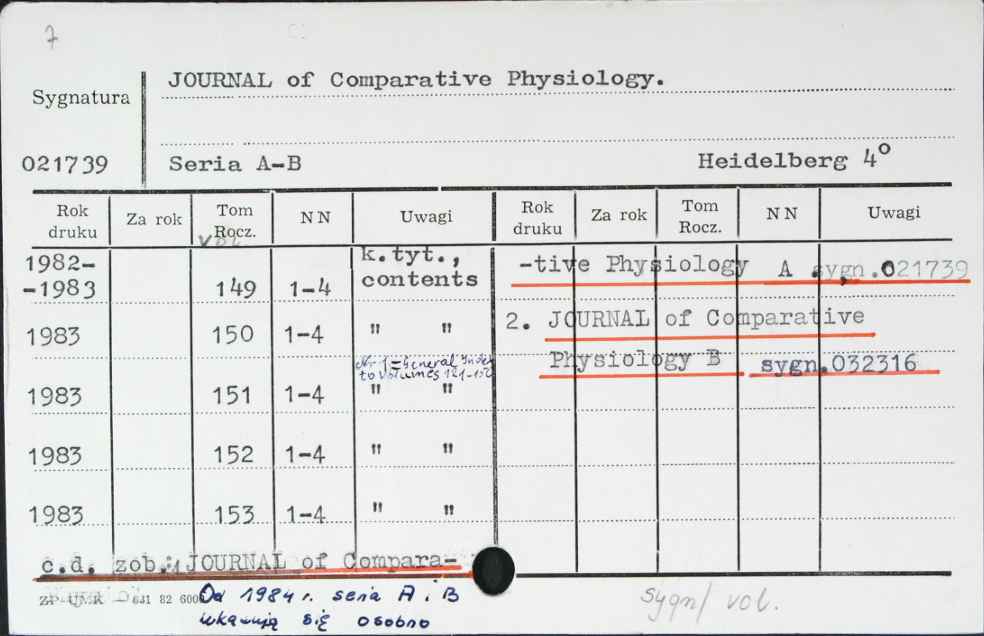 7
JOURNAL of Comparative Physiology.
Sygnatura
021739 Seria A-B Heidelberg 4°
Rok druku Za rok Tom Rocz. NN Uwagi Rok druku Za rok Tom Rocz. NN Uwagi
vol.
1982-
-1983 149 1-4 k.tyt., contents
1983 150 1-4 " "
Nr 1 = General Index
to volumes 121-150
1983 151 1-4 " "
1983 152 1-4 " "
1983 153 1-4 " "
c.d. zob.: 1 JOURNAL of Compara-
-tive Physiology A sygn.021739
2. JOURNAL of Comparative
Physiology B sygn.032316
ZP UMK — 631 82 6000
Od 1984 r. seria A i B
ukazują się osobno
sygn/ vol.